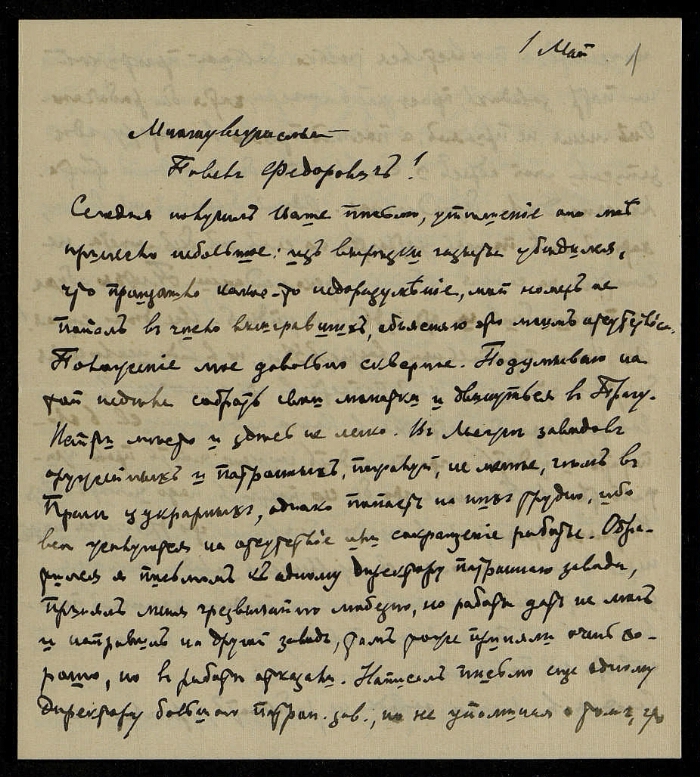 1 Мая 1
Многоуважаемый
Павелъ Федоровичъ!
Сегодня получилъ Ваше письмо, утѣшенiе оно мнѣ
принесло небольшое: изъ вырѣзки газеты убѣдился,
что произошло какое-то недоразумѣнiе, мой номеръ не
попалъ в число выигравшихъ, объясняю это моимъ отсутствiем.
Положенiе мое довольно скверное. Подумываю на
той недѣлѣ собрать свои манатки и двинуться в Прагу.
Найти мѣсто и здѣсь не легко. Въ заводовъ
оружейныхъ и патронныхъ, пожалуй, не менѣе, чѣмъ в
Праге, однако попасть на нихъ трудно, ибо
все жалуются на отсутствiе или сокращенiе работы. Обра-
тился я письмомъ къ одному директору патроннаго завода,
принялъ меня чрезвычайно любезно, но работы дать не могъ
и направилъ на другой заводъ, тамъ тоже приняли очень хо-
рошо, но в работѣ отказали. Написалъ письмо еще одному
директору большого патрон. зав., но не упомянул о томъ, что